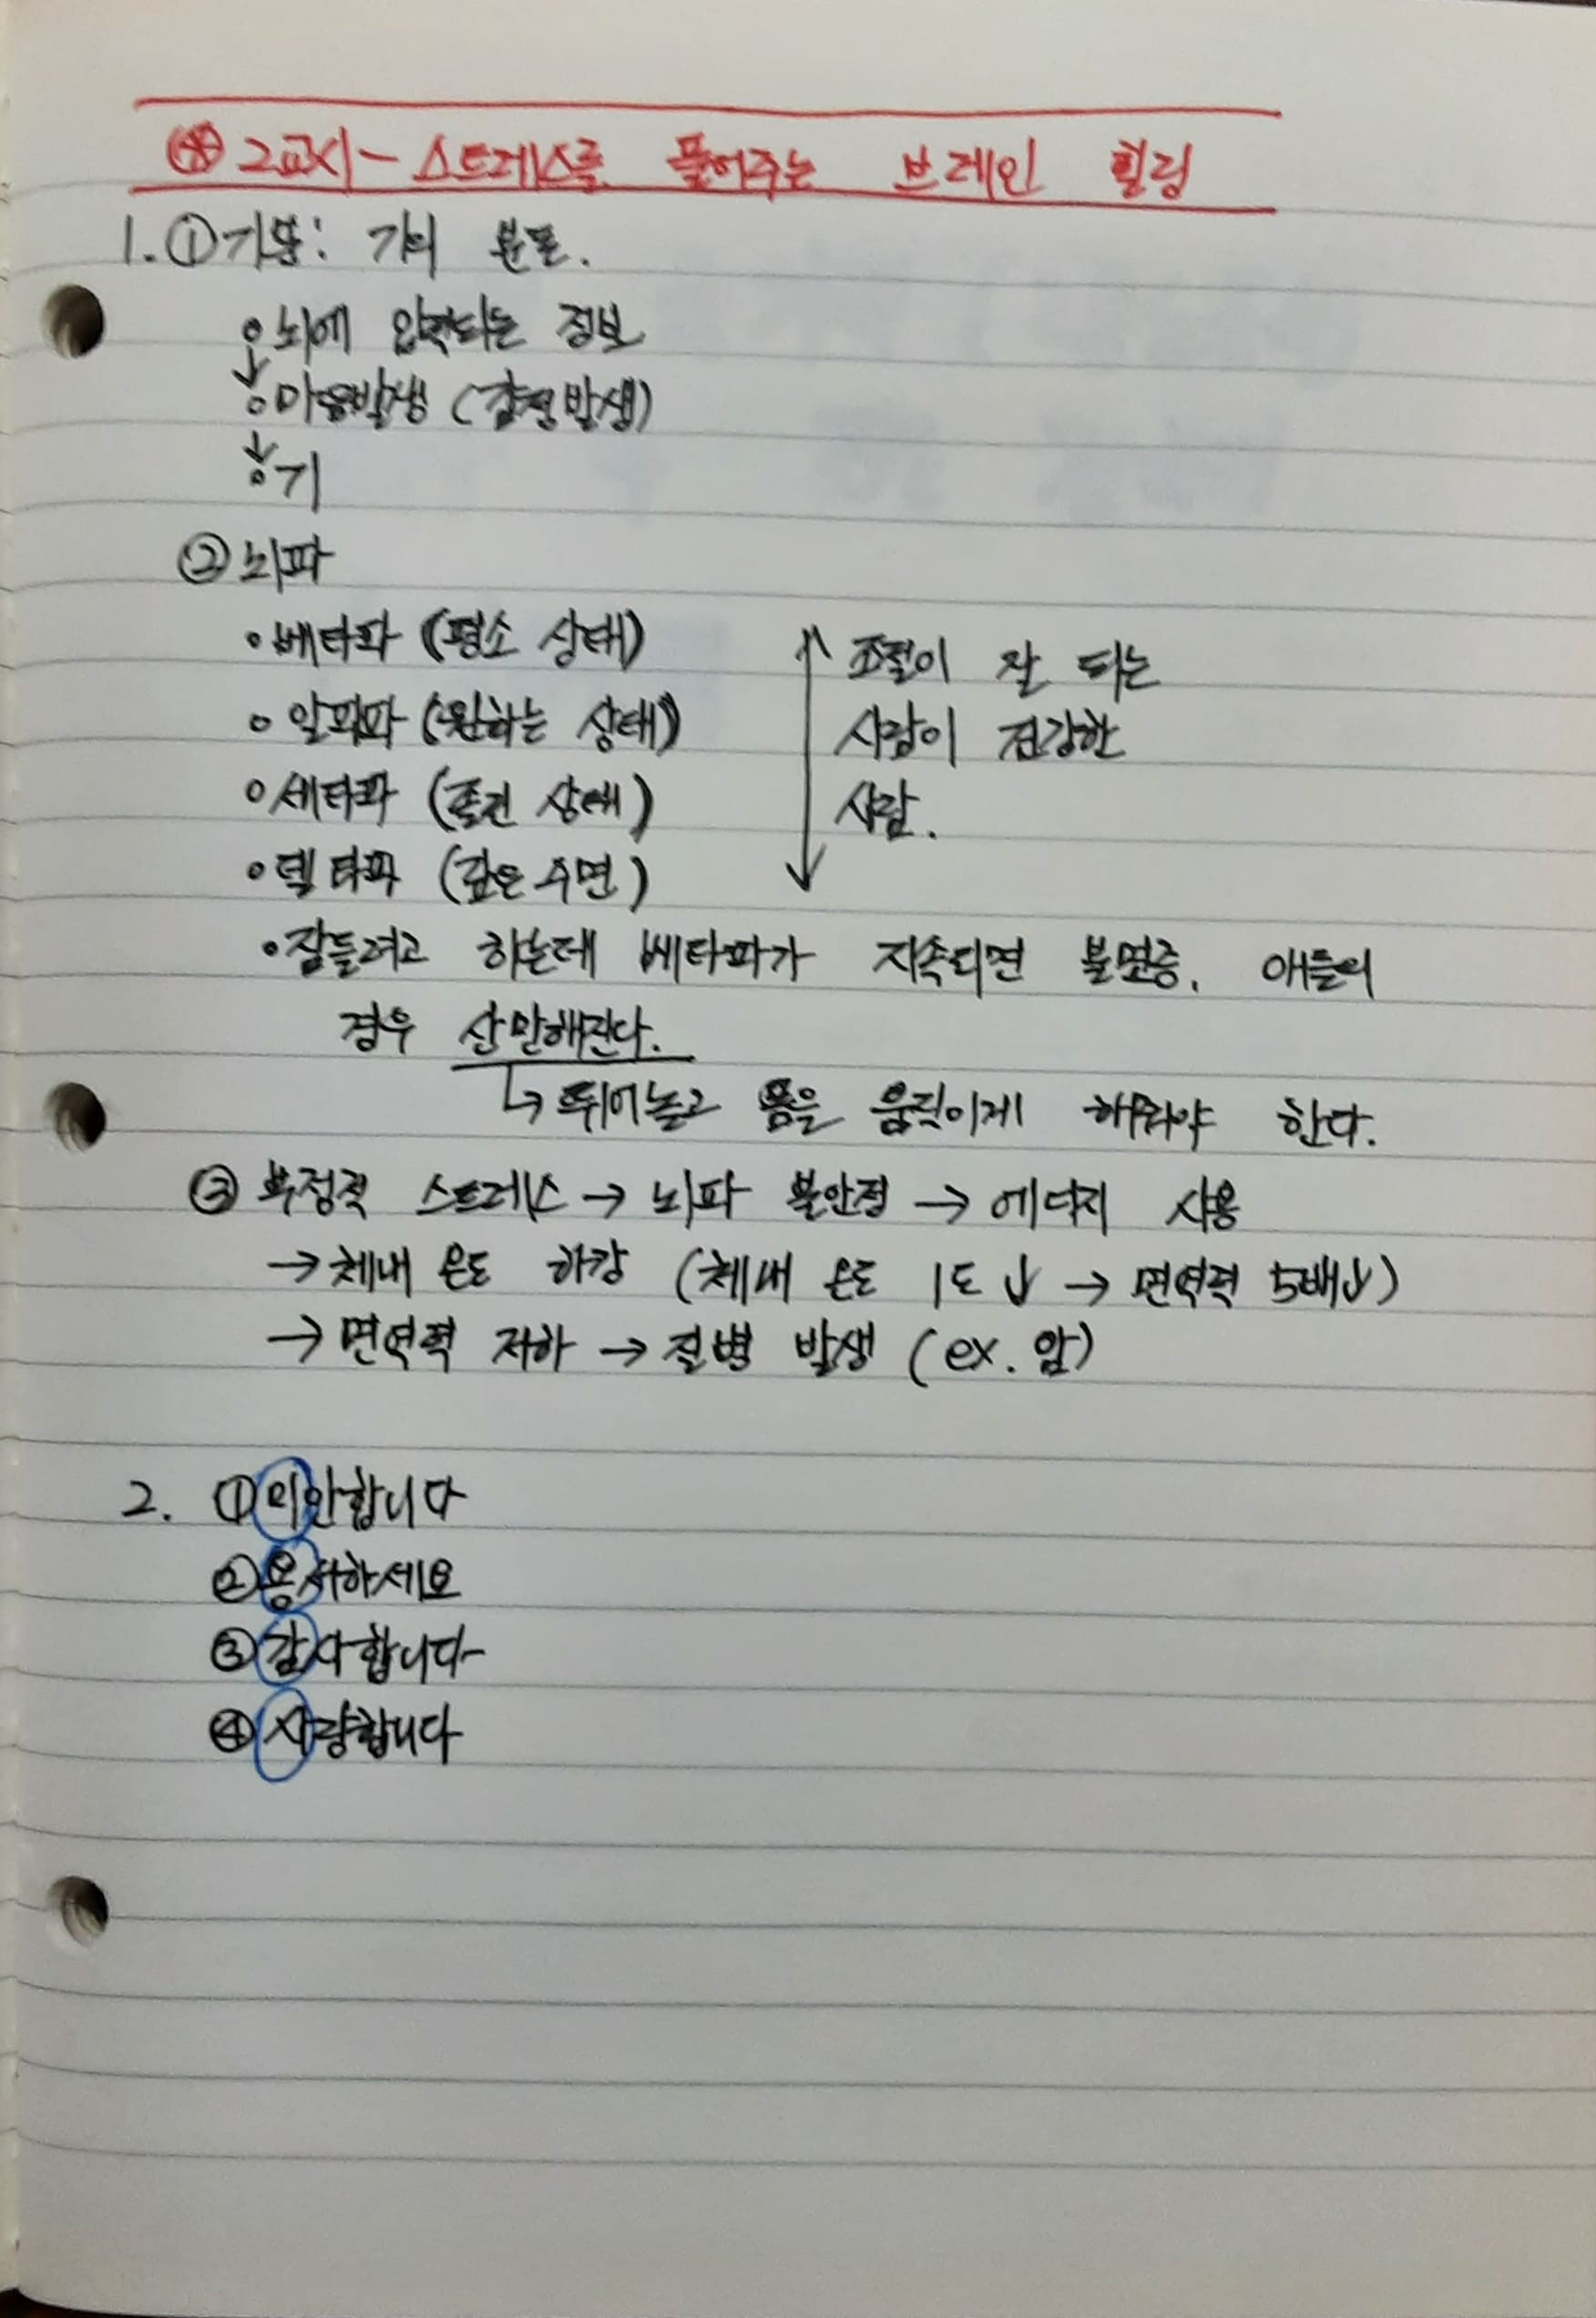 ※ 2교시 - 스트레스를 풀어주는 브레인 힐링
1. ① 기분: 기의 분포.
◦ 뇌에 입력되는 정보
↓
◦ 마음발생 (감정발생)
↓
◦ 기
② 뇌파
◦ 베타파 (평소 상태)
◦ 알파파 (원하는 상태)
◦ 세타파 (졸린 상태)
◦ 델타파 (깊은 수면)
조절이 잘 되는
사람이 건강한
사람.
• 잠들려고 하는데 베타파가 지속되면 불면증. 애들의
경우 산만해진다.
↳ 뛰어놀고 몸을 움직이게 해줘야 한다.
③ 부정적 스트레스 → 뇌파 불안정 → 에너지 사용
→ 체내 온도 하강 (체내 온도 1도 ↓ → 면역력 5배↓)
→ 면역력 저하 → 질병 발생 (ex. 암)
2. ① 미안합니다
② 용서하세요
③ 감사합니다
④ 사랑합니다